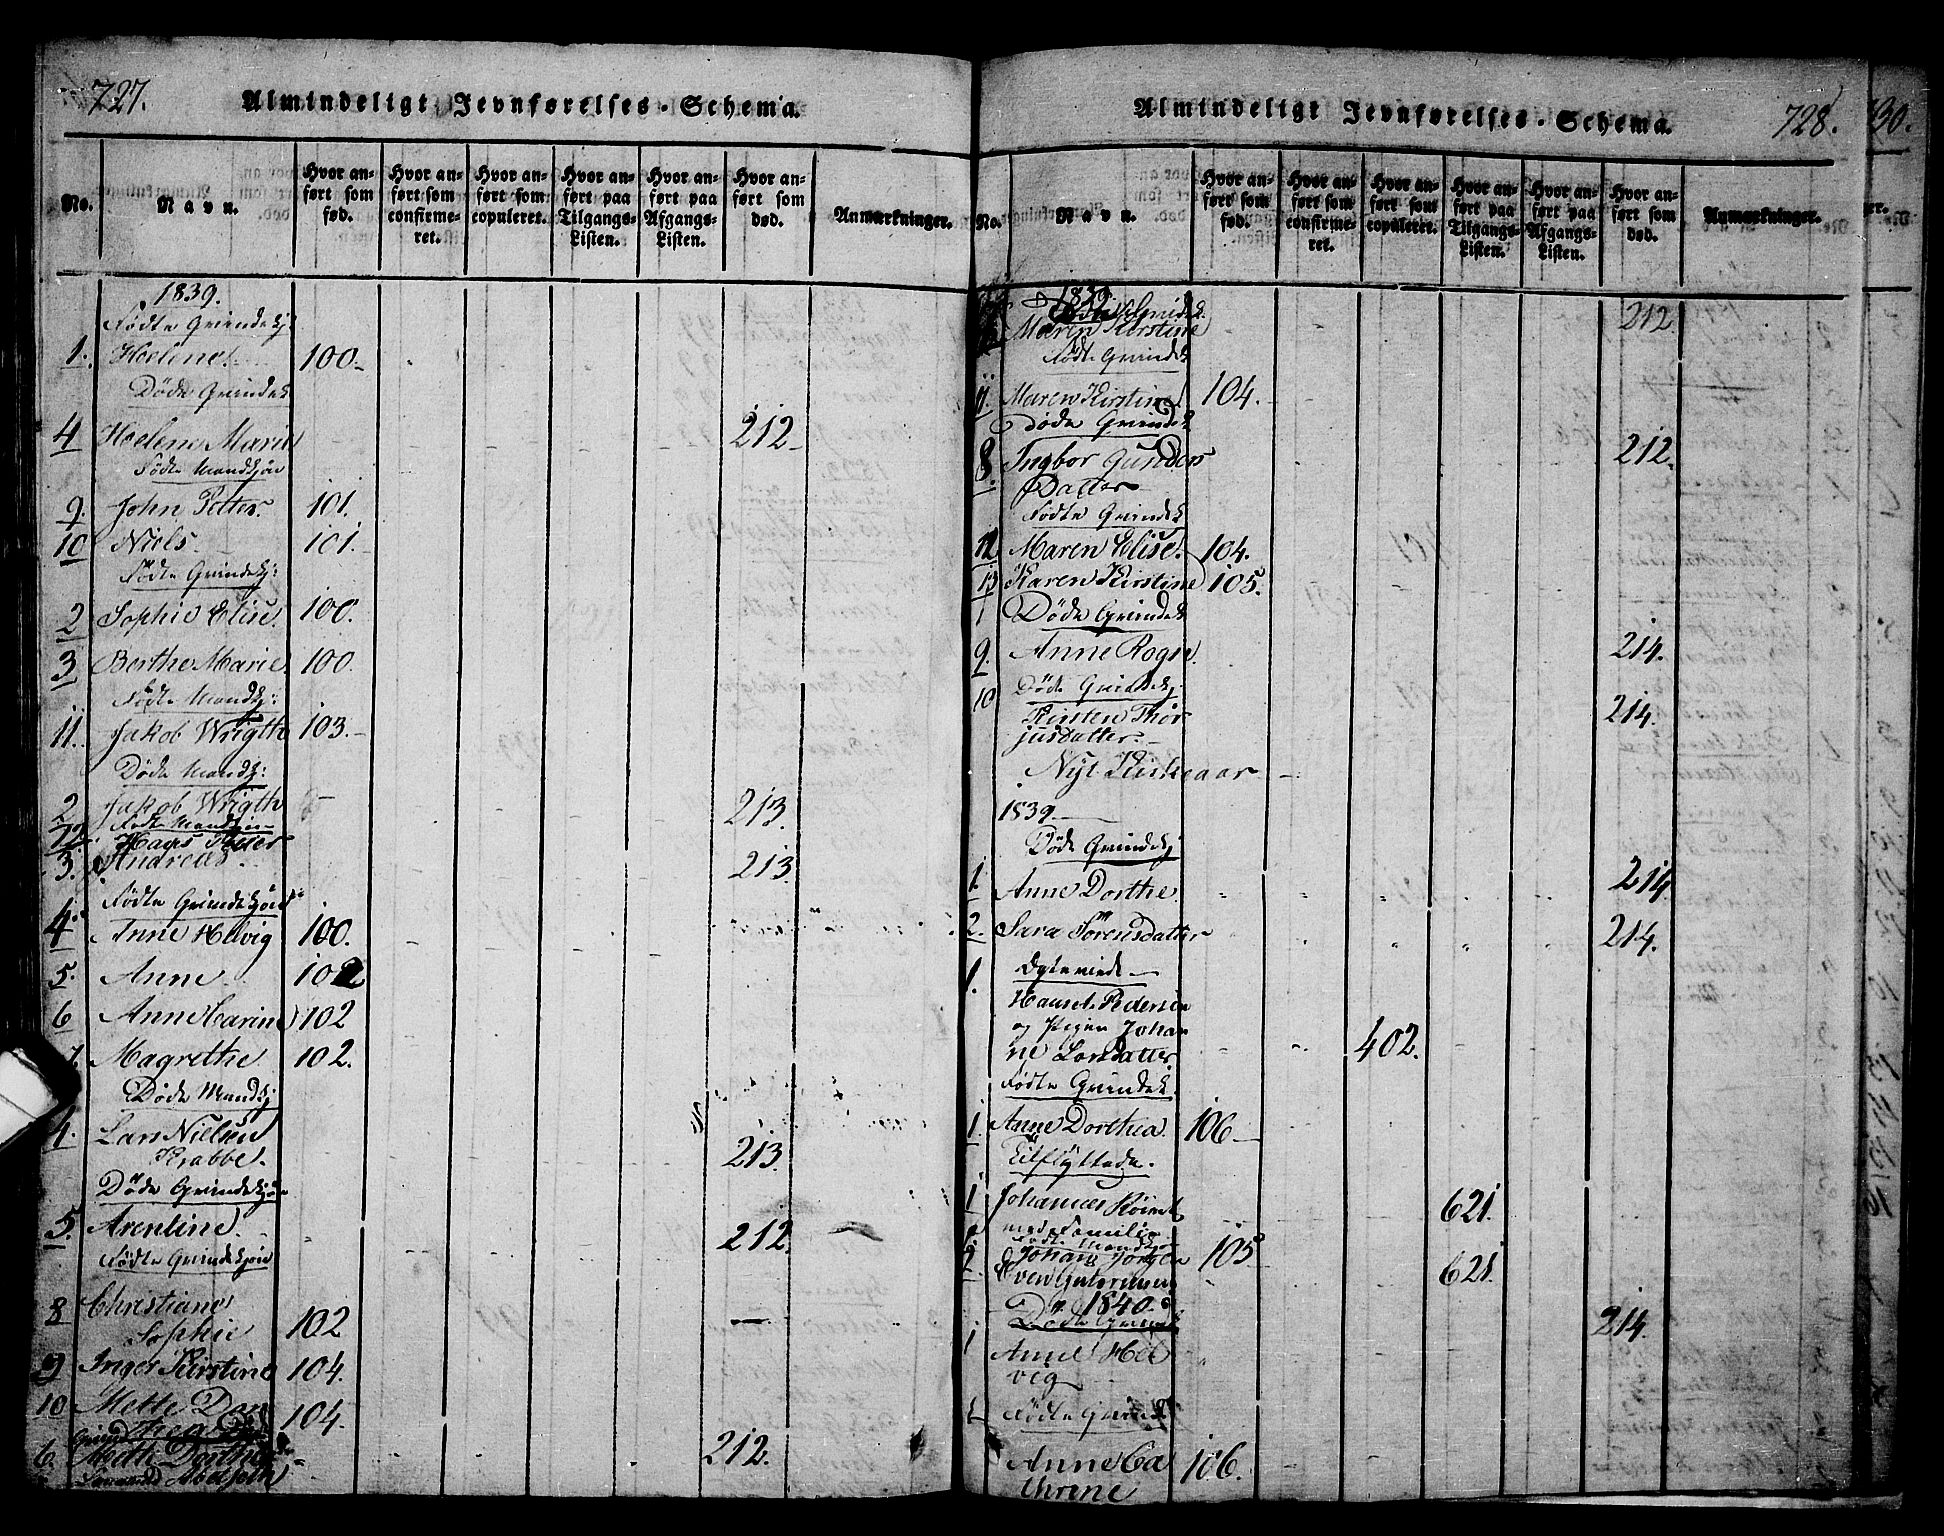 727.
Almindeligt Jevnførelses-Schema.
No.
Navn.
Hvor anført som fød.
Hvor anført som confirmeret.
Hvor anført som copuleret.
Hvor anført paa Tilgangs-Listen.
Hvor anført paa Afgangs-Listen.
Hvor anført som død.
Anmærkninger.
1839.
Födte Qvindekj:
1. Helene. 100.
Döde Qvindek
4 Helene Marie 212
Födte Mandkjön
9. John Petter. 101.
10 Niels. 101.
Födte Qvindekj:
2 Sophie Elise. 100.
3 Berthe Marie. 100.
Födte Mandkj:
11. Jakob Wrigth 103.
Döde Mandkj:
2 Jakob Wrigth 213.
Födte Mandkjön
12 Hans Petter
3. Andreas. 213.
Födte Qvindekjön
4 Anne Helvig 100.
5. Anne. 102
6 Anne Karine 102
7. Magrethe 102.
Döde Mandkj:
4. Lars Nielsen
Krabbe. 213.
Döde Qvindekjön
5. Arentine. 212.
Födte Qvindekjön
8 Christiane
Sophie 102
9 Inger Kirstine 104.
10 Mette Dor 104.
6. Mette Dorthe 212.
728.
Almindeligt Jevnførelses-Schema.
No.
Navn.
Hvor anført som fød.
Hvor anført som confirmeret.
Hvor anført som copuleret.
Hvor anført paa Tilgangs-Listen.
Hvor anført paa Afgangs-Listen.
Hvor anført som død.
Anmærkninger.
1839
Maren Kirstine 212
Födte Qvindek
11. Maren Kirstine 104.
Döde Qvindek
8. Ingbor Gunders
Datter 212.
Födte Qvindek
12 Maren Elise. 104.
13 Karen Kirstine 105.
Döde Qvindek
9. Anne Rogn. 214.
10 Döde Qvindekj:
Kirsten Thor
jusdatter. 214.
Nyt Kirkeaar
1839.
Döde Qvindekj
1. Anne Dorthe. 214.
2. Sara Sörensdatter 214.
1. Egteviede
Hans L. Pedersen
og Pigen Johan
ne Larsdatter 402.
Födte Qvindek.
1. Anne Dorthea. 106
Tilflyttede.
1 Johannes 621.
med Familie
Födte Mandkjön
Johan Jörgen 105
2. Sven Gutormsen 621.
1840.
Döde Qvindek
1 Anne Hel
vig 214.
Födte Qvind
Anne Ca
thrine 106.
30.